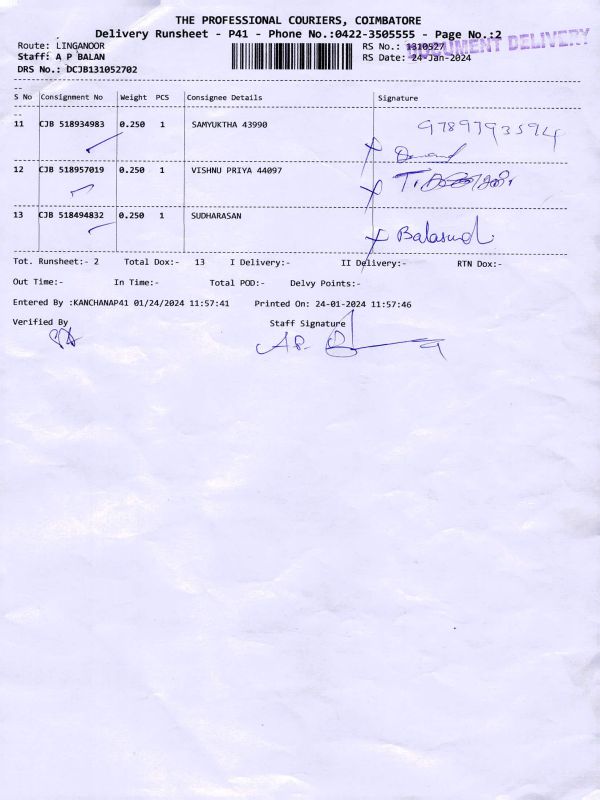 THE PROFESSIONAL COURIERS, COIMBATORE
Delivery Runsheet - P41 - Phone No.:0422-3505555 - Page No.:2
DOCUMENT DELIVERY
Route: LINGANOOR
RS No.: 1310527
Staff: A P BALAN
RS Date: 24-Jan-2024
DRS No.: DCJB131052702
S No Consignment No Weight PCS Consignee Details Signature
11 CJB 518934983 0.250 1 SAMYUKTHA 43990
12 CJB 518957019 0.250 1 VISHNU PRIYA 44097
13 CJB 518494832 0.250 1 SUDHARASAN
Tot. Runsheet:- 2 Total Dox:- 13 I Delivery:- II Delivery:- RTN Dox:-
Out Time:- In Time:- Total POD:- Delvy Points:-
Entered By :KANCHANAP41 01/24/2024 11:57:41 Printed On: 24-01-2024 11:57:46
Verified By Staff Signature